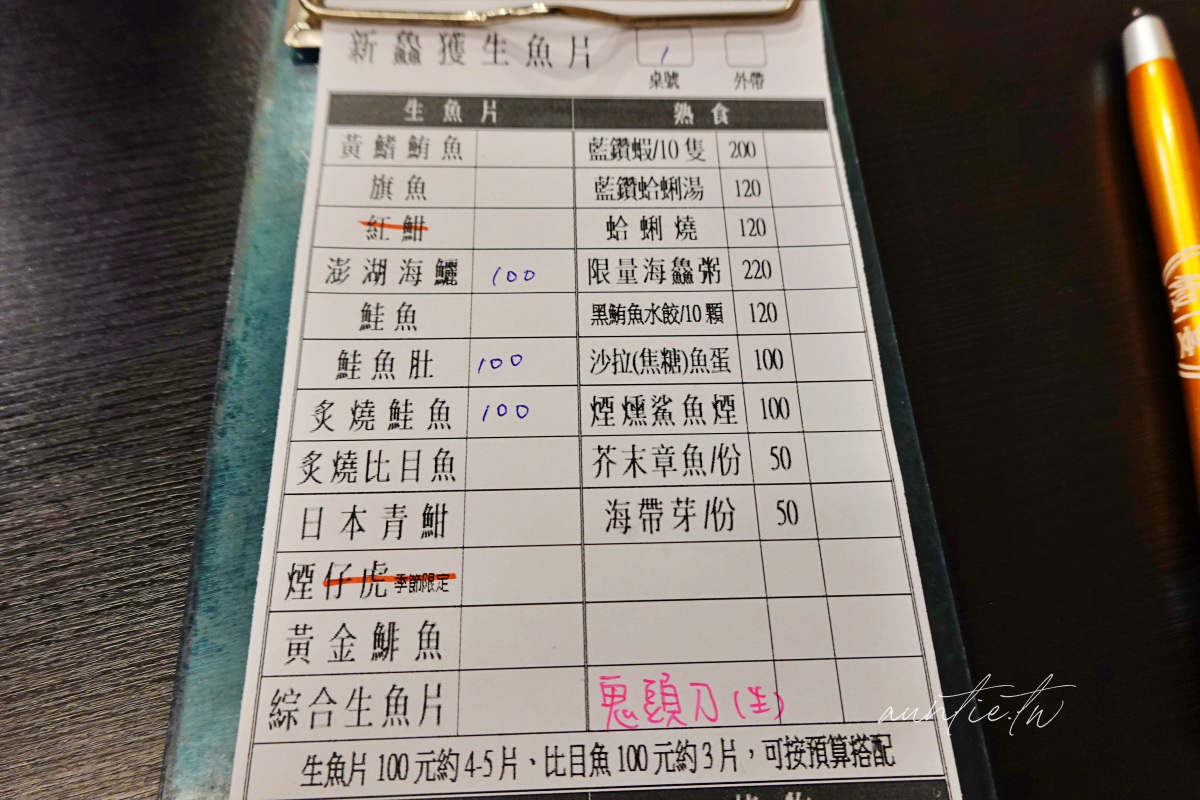 新鱻獲生魚片 1
桌號 外帶
生魚片 熟食
黃鰭鮪魚 藍鑽蝦/10隻 200
旗魚 藍鑽蛤蜊湯 120
紅魽 蛤蜊燒 120
澎湖海鱺 100 限量海鱻粥 220
鮭魚 黑鮪魚水餃/10顆 120
鮭魚肚 100 沙拉(焦糖)魚蛋 100
炙燒鮭魚 100 煙燻鯊魚煙 100
炙燒比目魚 芥末章魚/份 50
日本青魽 海帶芽/份 50
煙仔虎 季節限定
黃金鯡魚
綜合生魚片 鬼頭刀(生)
生魚片100元約4-5片、比目魚100元約3片，可按預算搭配
auntie.tw